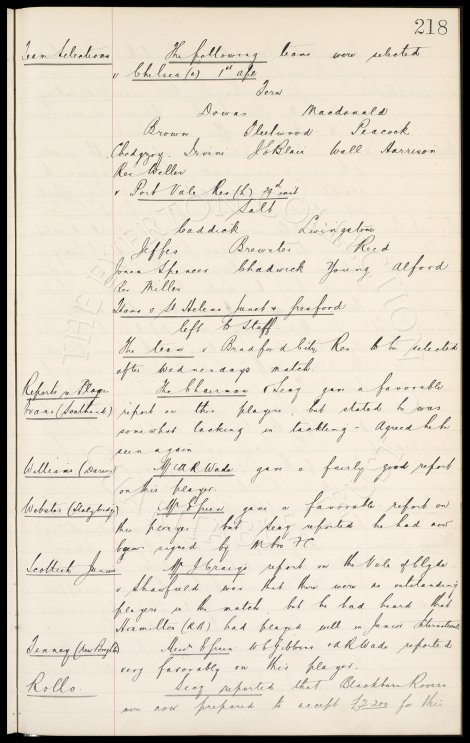 218
Team Selections The following teams were selected
v Chelsea (a) 1st Apl
Fern
Downs Macdonald
Brown Fleetwood Peacock
Chedgzoy Irvine J. Blair Wall Harrison
Res Weller
v Port Vale Res (h) 29th inst
Salt
Caddick Livingstone
Jeffes Brewster Reid
Jones Spencer Chadwick Young Alford
Res Miller
Teams v St Helens Junct & Gresford
left to Staff
The team v Bradford City Res. to be selected
after Wednesdays match
Reports re Players The Chairman & Secy gave a favorable
Evans (Southend) report on this players, but stated he was
somewhat lacking in tackling - Agreed he be
seen again
Williams (Darwen) Mr A.R. Wade gave a fairly good report
on this player.
Webster (Stalybridge) Mr E Green gave a favorable report on
this player but Secy reported he had now
been signed by FC
Scottish Juniors Mr J Craig's report on the Vale of Clyde
v Shawfield was that there were no outstanding
players in the match. but he had heard that
Hamilton had played well in Junior Internationals
Tenney (New Brighton) Messrs E Green W C Gibbins & A R Wade reported
very favorably on this player.
Rollo. Secy reported that Blackburn Rovers
were now prepared to accept £2200 for this
THE EVERTON COLLECTION